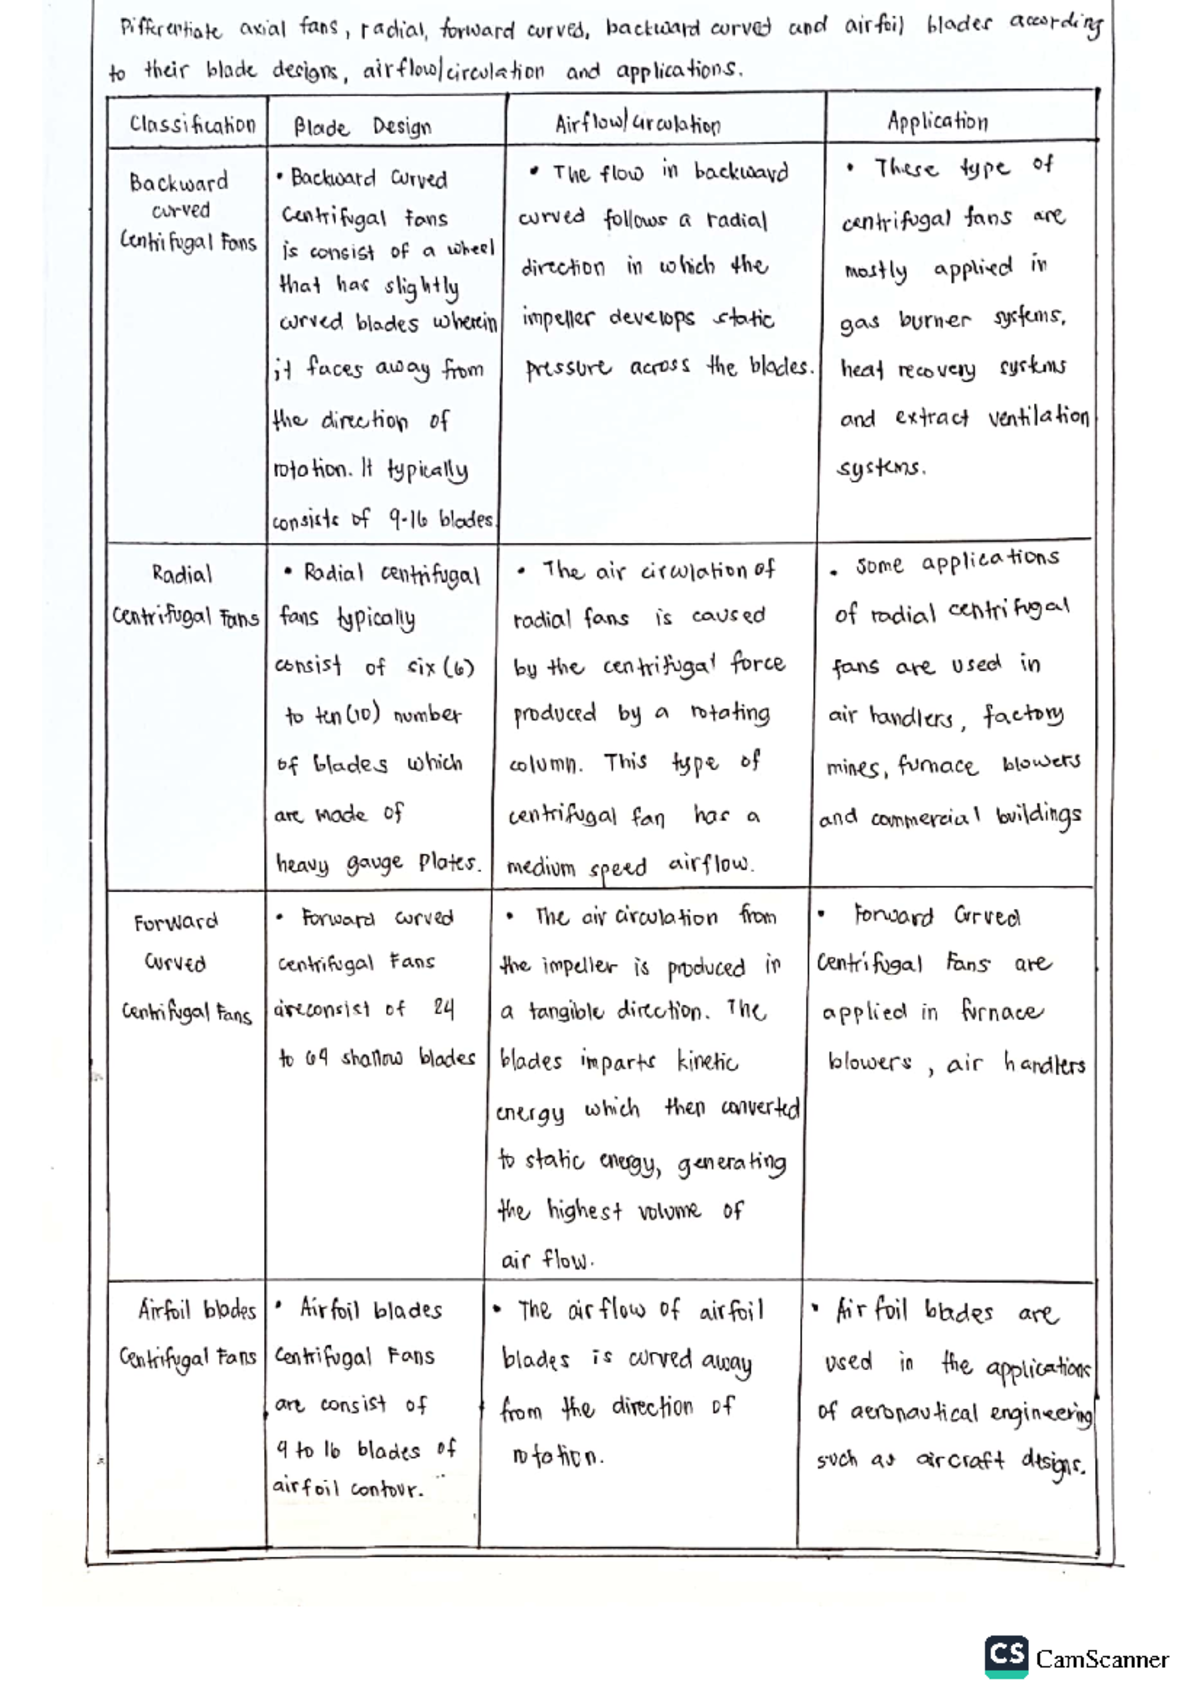 Differentiate axial fans, radial, forward curved, backward curved and airfoil blades according
to their blade designs, airflow/circulation and applications.
Classification
Blade Design
Airflow/circulation
Application
Backward
curved
Centrifugal Fans
• Backward Curved
Centrifugal Fans
is consist of a wheel
that has slightly
curved blades wherein
it faces away from
the direction of
rotation. It typically
consists of 9-16 blades.
• The flow in backward
curved follows a radial
direction in which the
impeller develops static
pressure across the blades.
• These type of
centrifugal fans are
mostly applied in
gas burner systems,
heat recovery systems
and extract ventilation
systems.
Radial
Centrifugal Fans
• Radial centrifugal
fans typically
consist of six (6)
to ten (10) number
of blades which
are made of
heavy gauge plates.
• The air circulation of
radial fans is caused
by the centrifugal force
produced by a rotating
column. This type of
centrifugal fan has a
medium speed airflow.
• Some applications
of radial centrifugal
fans are used in
air handlers, factory
mines, furnace blowers
and commercial buildings
Forward
Curved
Centrifugal Fans
• Forward curved
centrifugal Fans
are consist of 24
to 64 shallow blades
• The air circulation from
the impeller is produced in
a tangible direction. The
blades imparts kinetic
energy which then converted
to static energy, generating
the highest volume of
air flow.
• Forward Curved
Centrifugal Fans are
applied in furnace
blowers, air handlers
Airfoil blades
Centrifugal Fans
• Airfoil blades
Centrifugal Fans
are consist of
9 to 16 blades of
airfoil contour.
• The airflow of airfoil
blades is curved away
from the direction of
rotation.
• Airfoil blades are
used in the applications
of aeronautical engineering
such as aircraft designs.
CS CamScanner